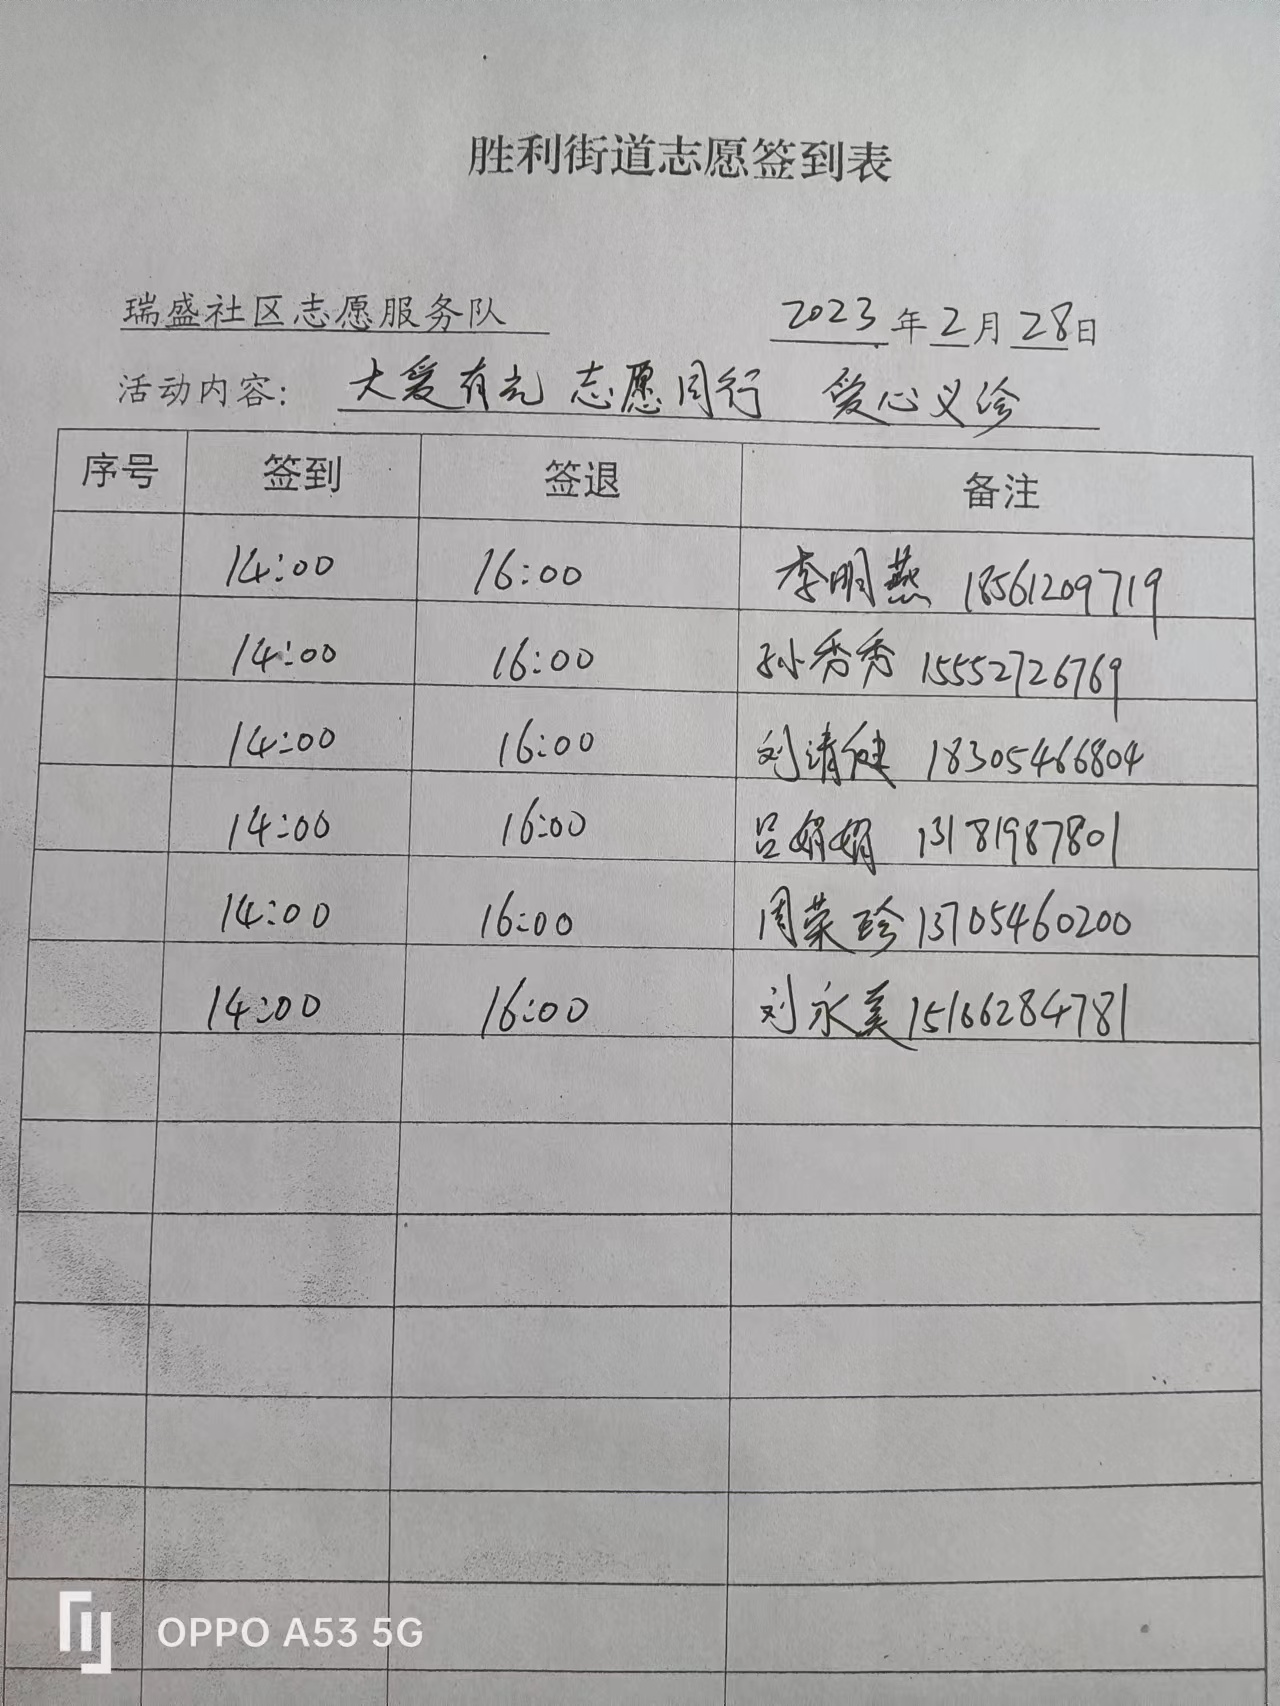 胜利街道志愿签到表
瑞盛社区志愿服务队 2023年2月28日
活动内容: 大爱有光 志愿同行 爱心义诊
序号 签到 签退 备注
14:00 16:00 李明燕 18561209719
14:00 16:00 孙秀秀 15552726769
14:00 16:00 刘清健 18305466804
14:00 16:00 吕娟娟 13181987801
14:00 16:00 周荣珍 13705460200
14:00 16:00 刘永美 15166284781
OPPO A53 5G